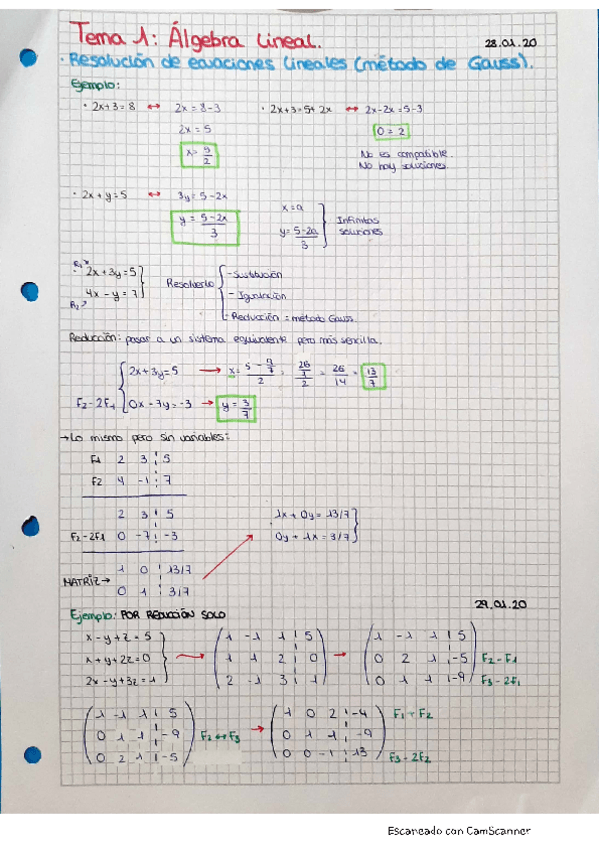 Tema 1: Álgebra Lineal.
28.01.20
· Resolución de ecuaciones lineales (método de Gauss).
Ejemplo:
· 2x+3=8 ↔ 2x=8-3 · 2x+3=5+2x ↔ 2x-2x=5-3
2x=5 0=2
x=5/2 No es compatible.
No hay soluciones.
· 2x+y=5 ↔ 3y=5-2x x=a
y=5-2x/3 y=5-2a/3 } Infinitas soluciones
R1 2x+3y=5
4x-y=7 } Resolverlo { -Sustitución
R2 - Igualación
- Reducción = método Gauss.
Reducción: pasar a un sistema equivalente pero más sencilla.
2x+3y=5 → x= 5-9/7 / 2 = 26/7 / 2 = 26/14 = 13/7
F2-2F1 0x-7y=-3 → y=3/7
→Lo mismo pero sin variables:
F1 2 3 | 5
F2 4 -1 | 7
2 3 | 5 1x+0y=13/7
F2-2F1 0 -7 | -3 0y+1x=3/7
MATRIZ→ 1 0 | 13/7
0 1 | 3/7
29.01.20
Ejemplo: POR REDUCCIÓN SOLO
x-y+z=5 1 -1 1 | 5 1 -1 1 | 5
x+y+2z=0 → 1 1 2 | 0 → 0 2 1 | -5 F2-F1
2x-y+3z=1 2 -1 3 | 1 0 1 1 | -9 F3-2F1
1 -1 1 | 5 1 0 2 | -4 F1+F2
0 1 1 | -9 F2↔F3 → 0 1 1 | -9
0 2 1 | -5 0 0 -1 | 13 F3-2F2
Escaneado con CamScanner